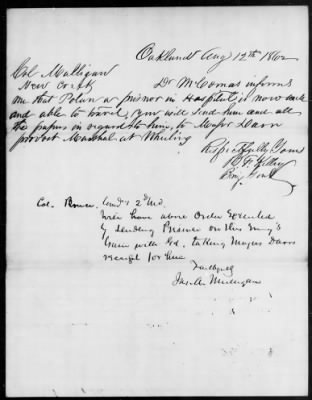 Oakland Aug 12th 1862
Col Mulligan
New Creek
Dr McComas informs
me that Polun a prisner in Hospital is now well
and able to travel, you will send him and all
the papers in regard to him, to Major Darr
provost Marshal at Wheeling
Respectfully Yours
B F Kelley
Brig Genl
Col. Bruce, Comd'g 2d Md.
Will have above Order Executed
by sending Prisoner on this Evng's
train with Gd. taking Major Darr's
receipt for him
Jas. A. Mulligan